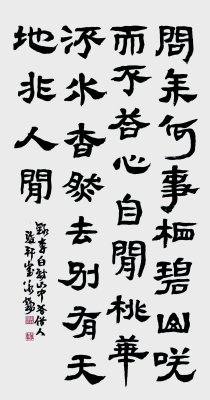 問余何事栖碧山咲
而不荅心自閒桃華
流水杳然去別有天
地非人閒
錄李白詩山中答俗人